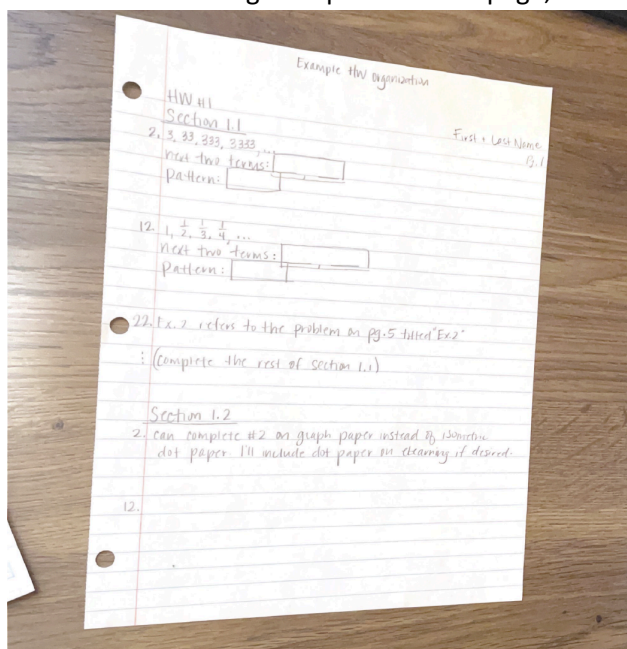 Example HW organization
HW #1
Section 1.1
First + Last Name
pg. 1
2. 3, 33, 333, 3333, ...
next two terms:
pattern:
12. 1, 1/2, 1/3, 1/4, ...
next two terms:
pattern:
22. Ex. 2 refers to the problem on pg. 5 titled "Ex. 2"
: (complete the rest of section 1.1)
Section 1.2
2. can complete #2 on graph paper instead of isometric
dot paper. I'll include dot paper on elearning if desired.
12.